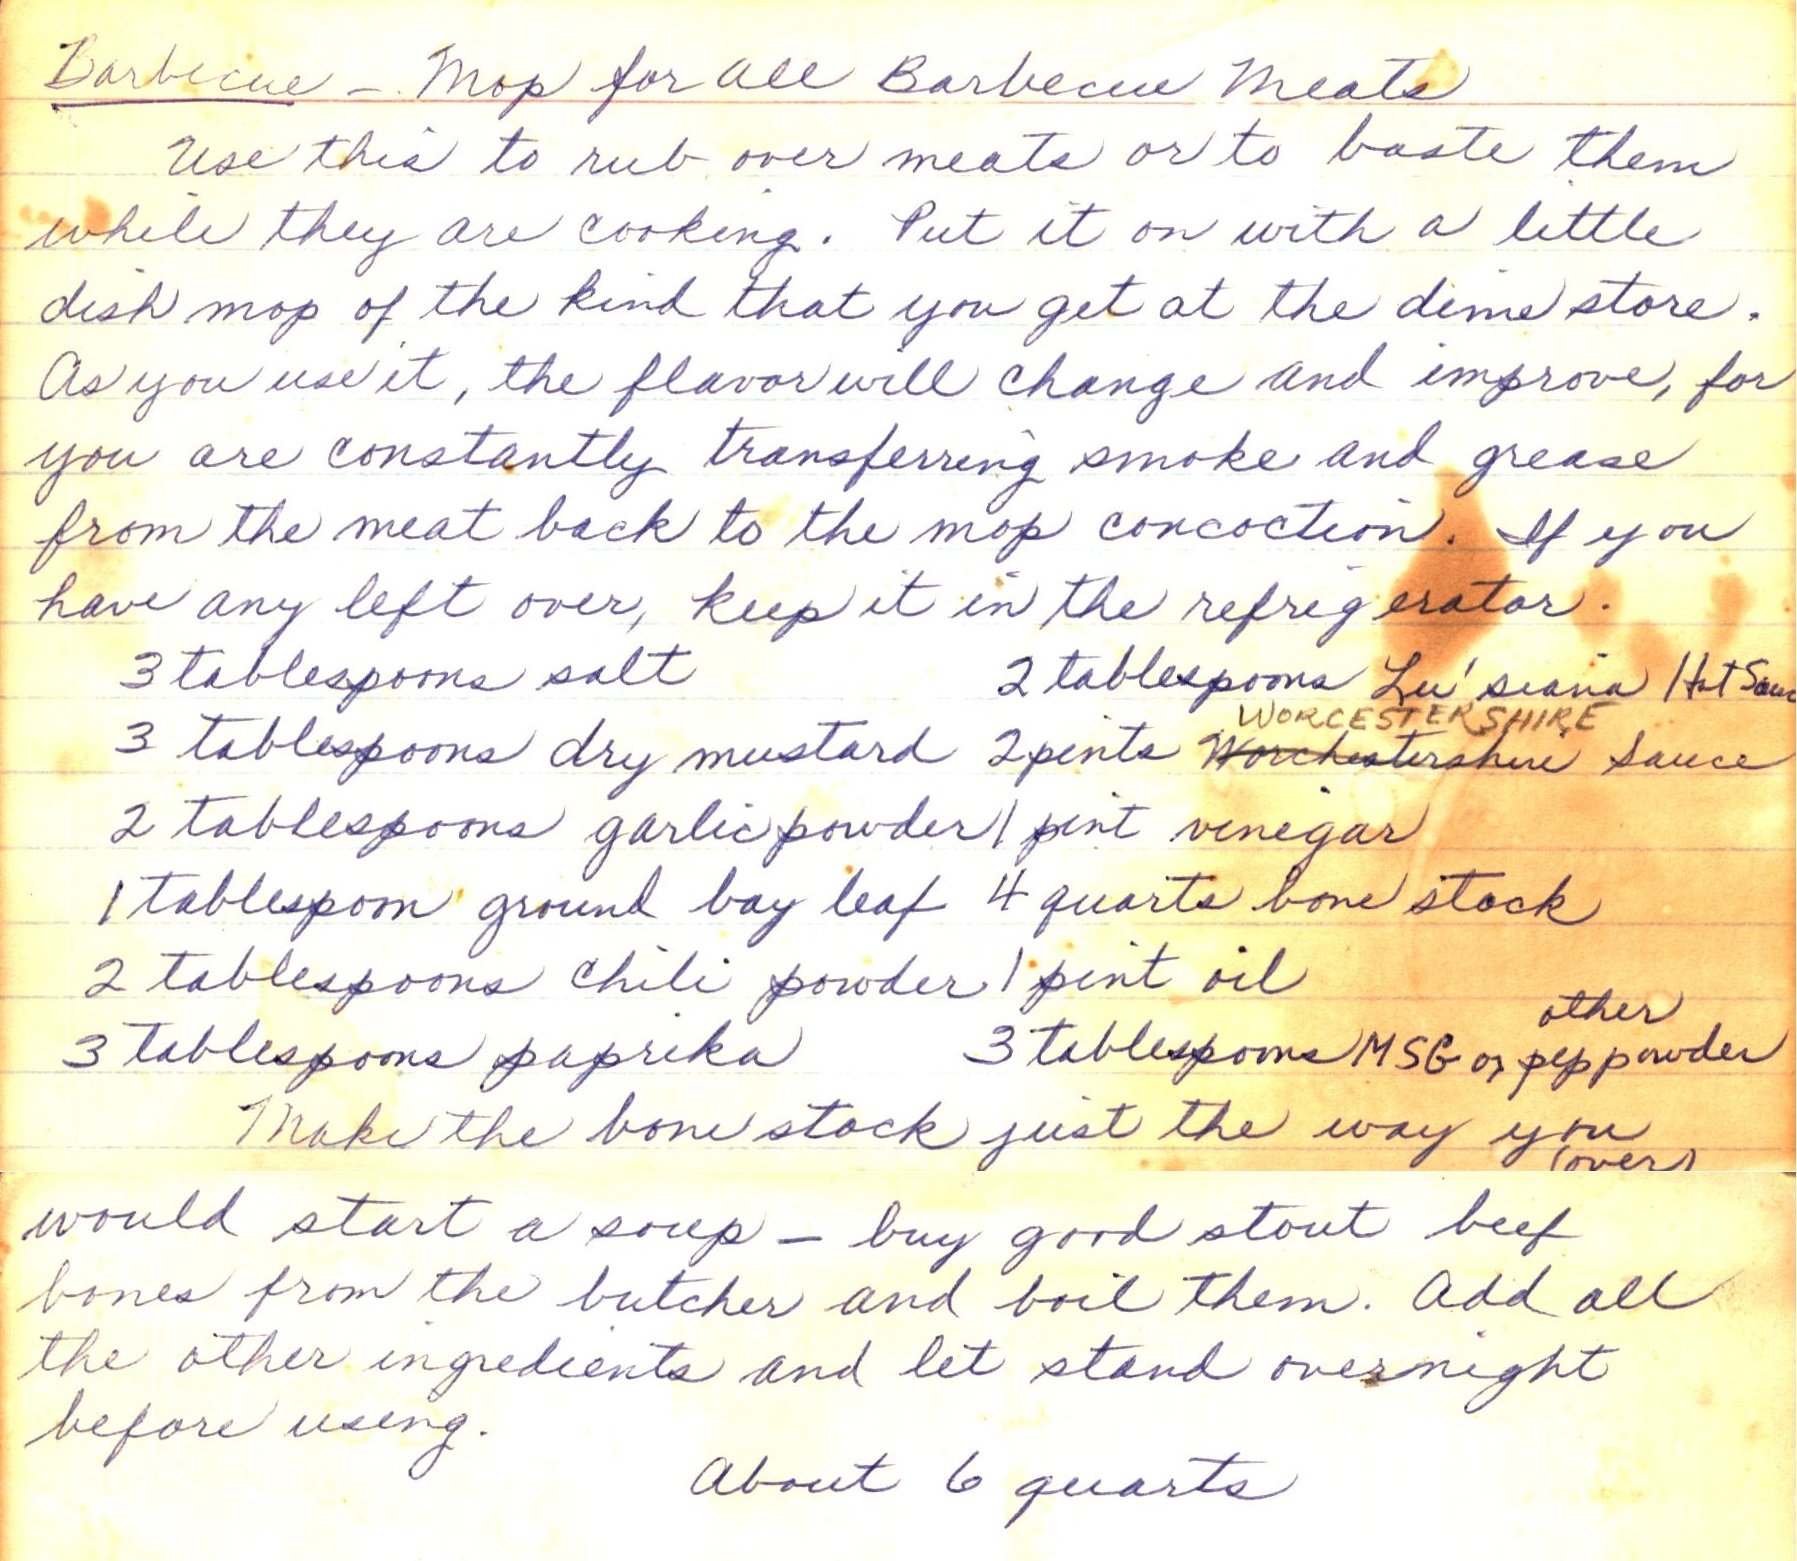 Barbecue – Mop for all Barbecue Meats
Use this to rub over meats or to baste them
while they are cooking. Put it on with a little
dish mop of the kind that you get at the dime store.
As you use it, the flavor will change and improve, for
you are constantly transferring smoke and grease
from the meat back to the mop concoction. If you
have any left over, keep it in the refrigerator.
3 tablespoons salt 2 tablespoons Lu'siana Hot Sauce
WORCESTERSHIRE
3 tablespoons dry mustard 2 pints Worchestershire Sauce
2 tablespoons garlic powder 1 pint vinegar
1 tablespoon ground bay leaf 4 quarts bone stock
2 tablespoons chili powder 1 pint oil
other
3 tablespoons paprika 3 tablespoons MSG or pep powder
Make the bone stock just the way you
(over)
would start a soup – buy good stout beef
bones from the butcher and boil them. Add all
the other ingredients and let stand overnight
before using.
About 6 quarts